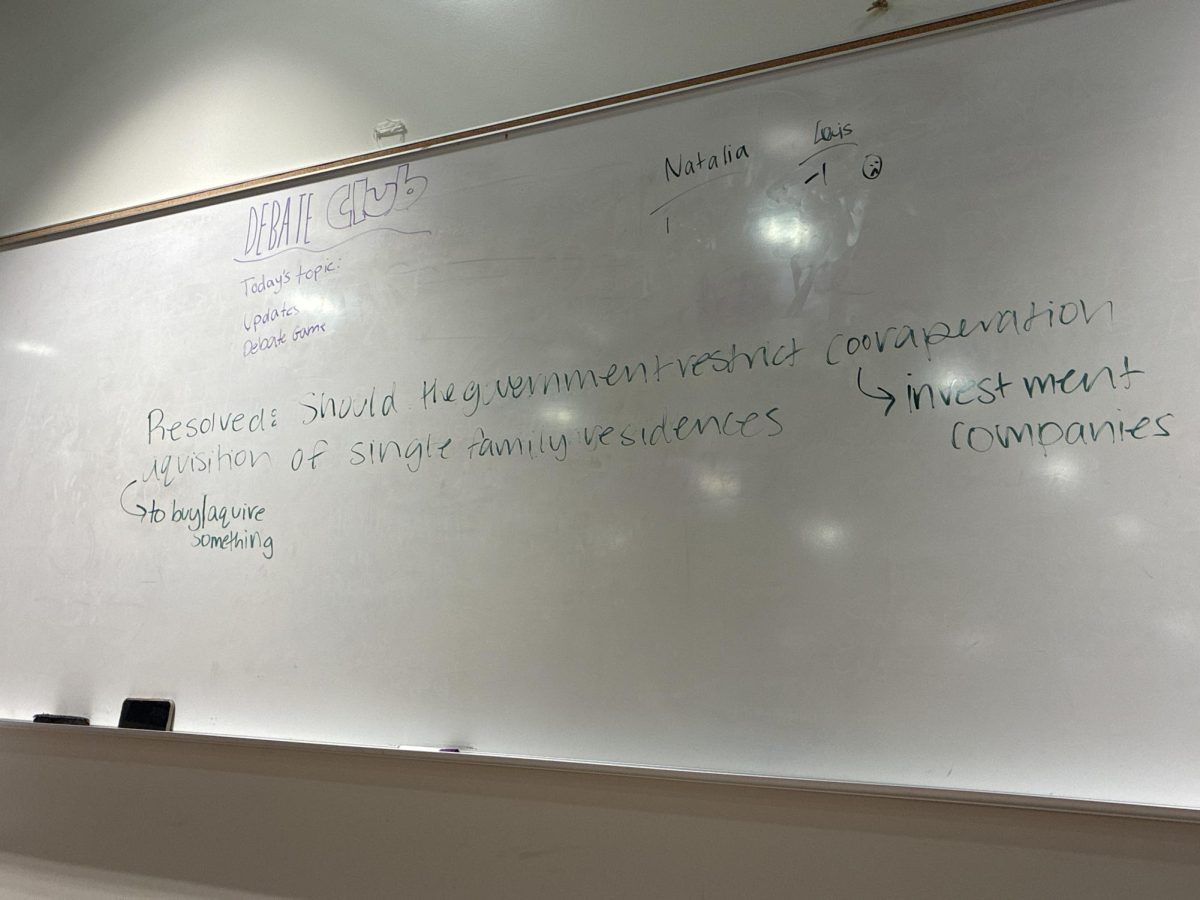 DEBATE Club
Today's topic:
Updates
Debate Game
Natalia
1
Lais
-1
Resolved: Should the government restrict cooraperation
aquisition of single family residences
investment
companies
to buy/aquire
something